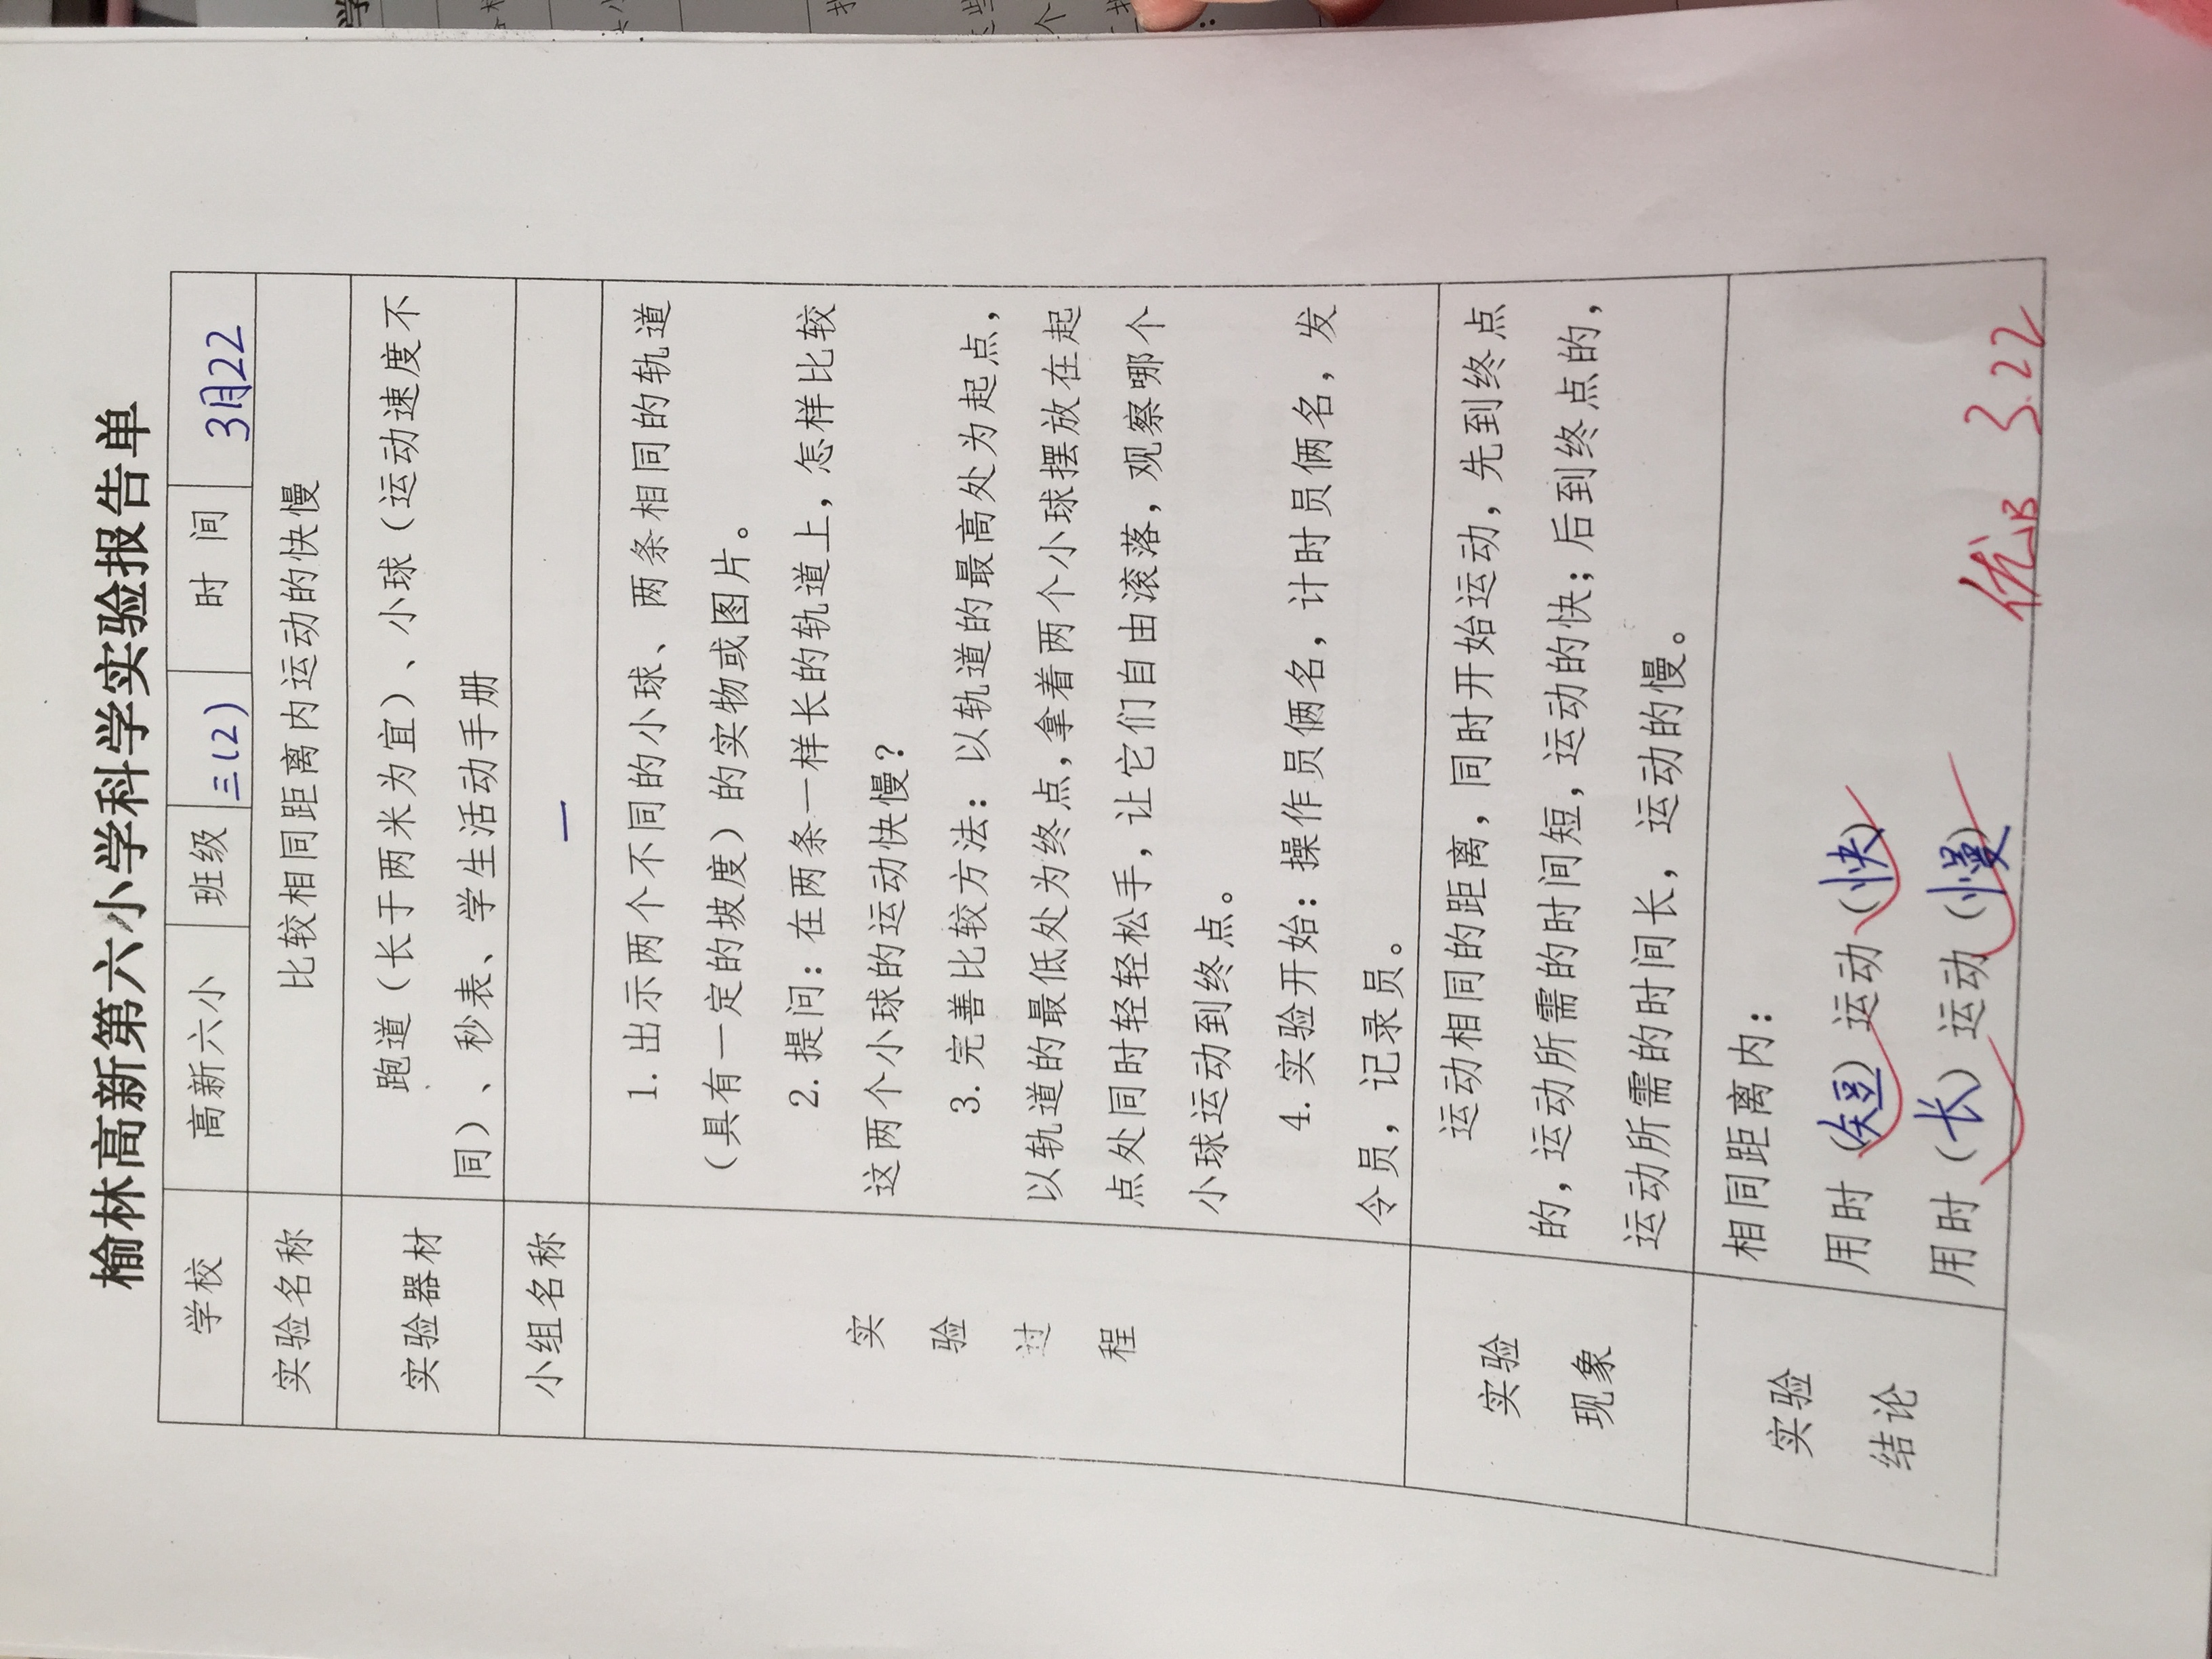 榆林高新第六小学科学实验报告单
学校 高新六小 班级 三(2) 时 间 3月22
实验名称 比较相同距离内运动的快慢
实验器材 跑道（长于两米为宜）、小球（运动速度不
同）、秒表、学生活动手册
小组名称 一
实
验
过
程
1.出示两个不同的小球、两条相同的轨道
（具有一定的坡度）的实物或图片。
2.提问：在两条一样长的轨道上，怎样比较
这两个小球的运动快慢？
3.完善比较方法：以轨道的最高处为起点，
以轨道的最低处为终点，拿着两个小球摆放在起
点处同时轻轻松手，让它们自由滚落，观察哪个
小球运动到终点。
4.实验开始：操作员俩名，计时员俩名，发
令员，记录员。
实验
现象
运动相同的距离，同时开始运动，先到终点
的，运动所需的时间短，运动的快；后到终点的，
运动所需的时间长，运动的慢。
实验
结论
相同距离内：
用时（短）运动（快）
用时（长）运动（慢）
优B 3.22